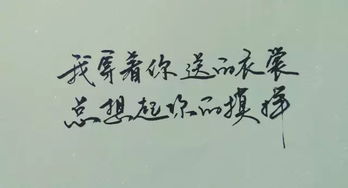 我穿着你送的衣裳
总想起你的摸样